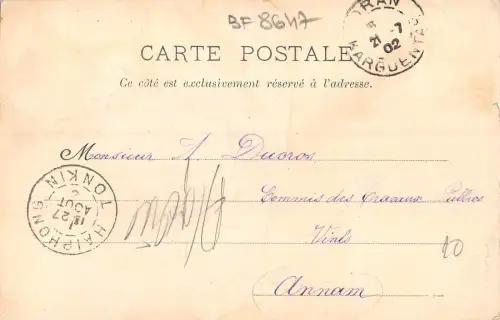 BF 8647
ORAN
21 -7
02
KARGUENTAH
CARTE POSTALE
Ce côté est exclusivement réservé à l'adresse.
Monsieur A. Ducros
Commis des Travaux Publics
Vinh
Annam
HAIPHONG TONKIN
27
AOUT
02
10